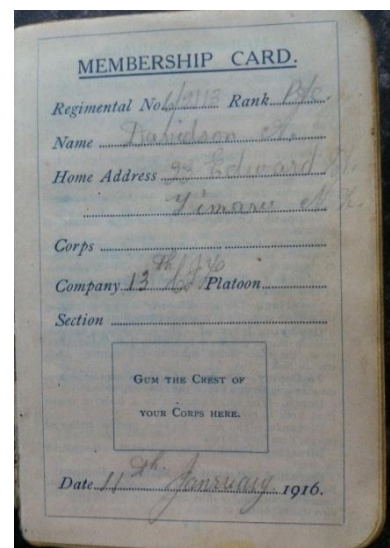 MEMBERSHIP CARD.
Regimental No. Rank Pte.
Name Davidson A.
Home Address 23 Edward St.
Timaru N.Z.
Corps
Company 13th Platoon
Section
GUM THE CREST OF
YOUR CORPS HERE.
Date 11th January 1916.